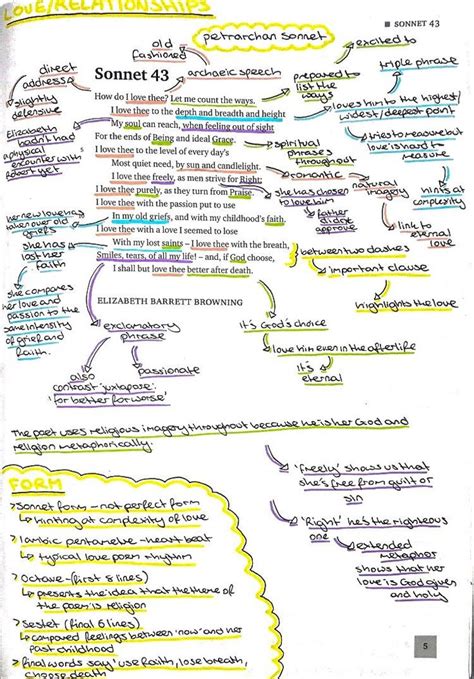 LOVE/RELATIONSHIPS
■ SONNET 43
petrarchan sonnet
old
fashioned
excited to
direct
address
archaeic speech
prepared to
list the
ways
triple phrase
slightly
defensive
Sonnet 43
How do I love thee? Let me count the ways.
I love thee to the depth and breadth and height
My soul can reach, when feeling out of sight
For the ends of Being and ideal Grace.
I love thee to the level of every day's
Most quiet need, by sun and candlelight.
I love thee freely, as men strive for Right;
I love thee purely, as they turn from Praise.
I love thee with the passion put to use
In my old griefs, and with my childhood's faith.
I love thee with a love I seemed to lose
With my lost saints – I love thee with the breath,
Smiles, tears, of all my life! – and, if God choose,
I shall but love thee better after death.
ELIZABETH BARRETT BROWNING
loves him to the highest/
widest/deepest point
Elizabeth
hadn't had
a physical
encounter with
Robert yet
tries to measure but
love is hard to
measure
spiritual
phrases
throughout
romantic
natural
imagery
hints at
complexity
she has chosen
to love him
father
didn't
approve
link to
eternal
love
her new love has
taken over old
griefs
she has
lost her
faith
between two dashes
important clause
highlights the love
she compares
her love and
passion to the
same intensity
of grief and
faith.
exclamatory
phrase
it's God's choice
love him even in the afterlife
it's
eternal
passionate
also
contrast 'juxtapose'
'for better for worse'
The poet uses religious imagery throughout because he is her God and
religion metaphorically.
'freely' shows us that
she's free from guilt or
sin
'Right' he's the righteous
one
extended
metaphor
shows that her
love is God given
and holy
FORM
>Sonnet form – not perfect form
hinting at complexity of love
>Iambic pentametre – heart beat
typical love poem rhythm
>Octave – (first 8 lines)
presents the idea that the theme of
the poem is religion
>Sestet (final 6 lines)
compared feelings between 'now' and her
past childhood
>final words say 'use faith, lose breath,
choose death'
5